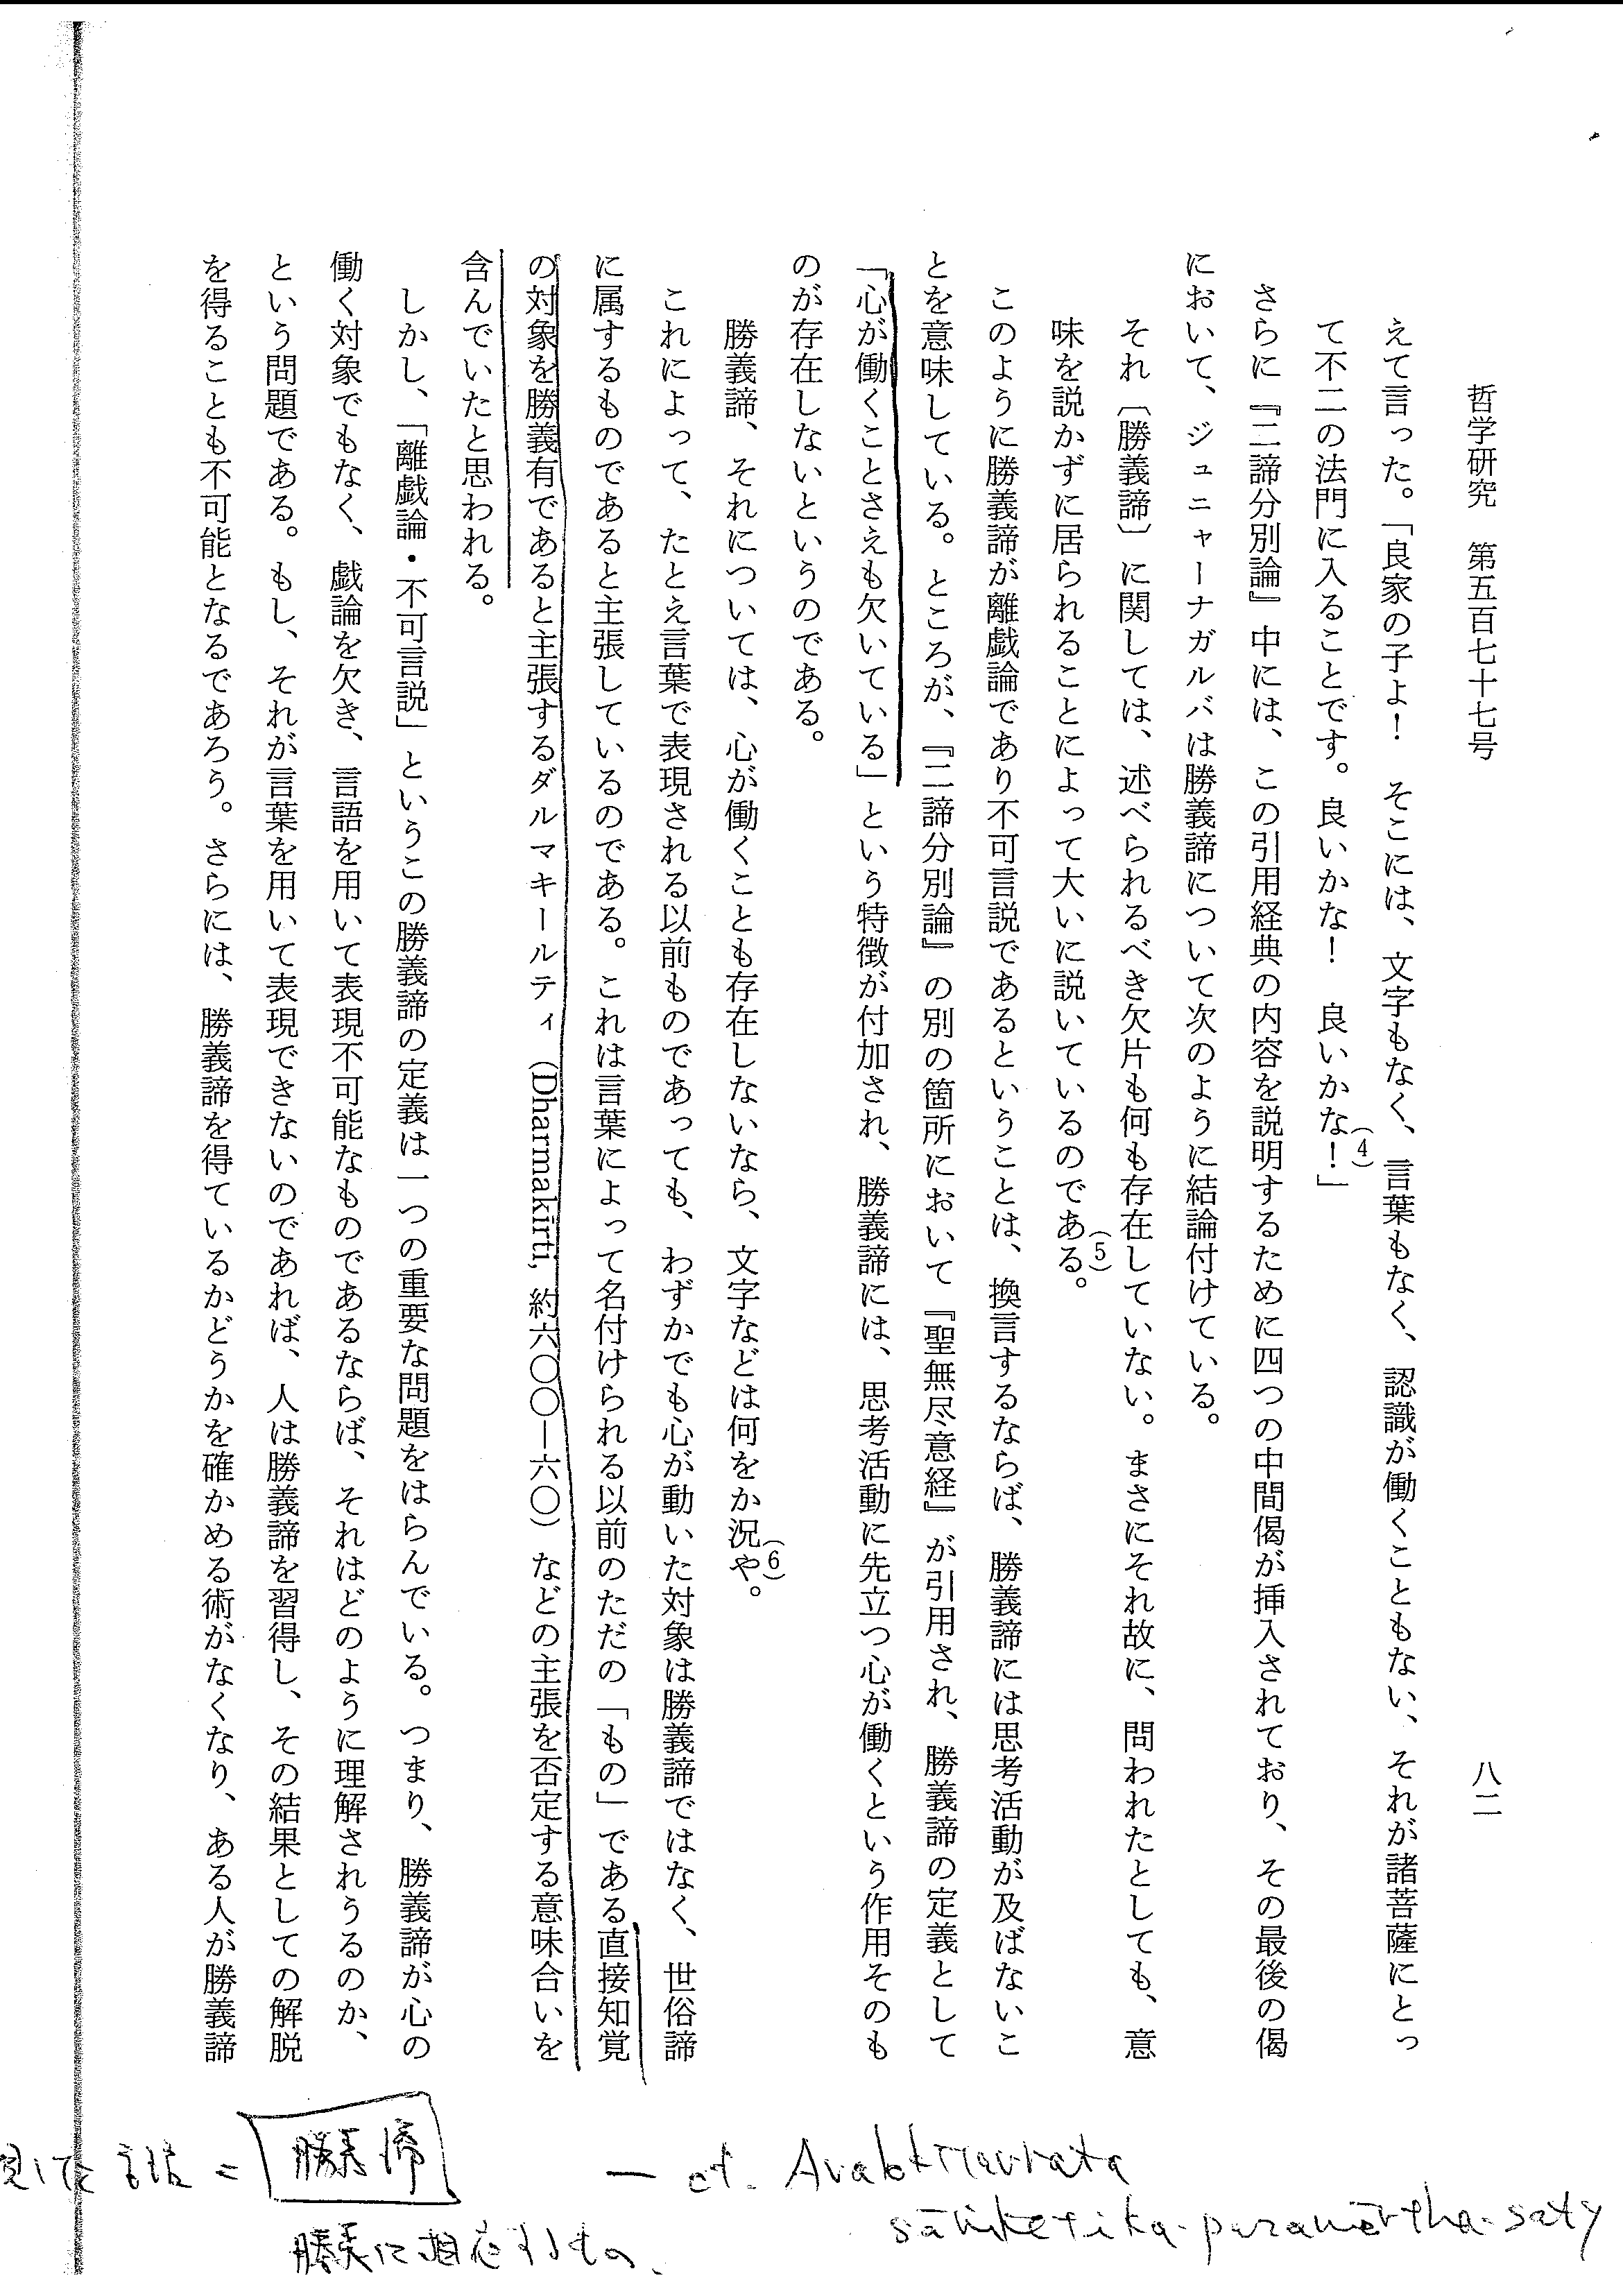 哲学研究　第五百七十七号
八二
えて言った。「良家の子よ！　そこには、文字もなく、言葉もなく、認識が働くこともない、それが諸菩薩にとっ
て不二の法門に入ることです。良いかな！　良いかな！」(4)
さらに『二諦分別論』中には、この引用経典の内容を説明するために四つの中間偈が挿入されており、その最後の偈
において、ジュニャーナガルバは勝義諦について次のように結論付けている。
それ〔勝義諦〕に関しては、述べられるべき欠片も何も存在していない。まさにそれ故に、問われたとしても、意
味を説かずに居られることによって大いに説いているのである。(5)
このように勝義諦が離戯論であり不可言説であるということは、換言するならば、勝義諦には思考活動が及ばないこ
とを意味している。ところが、『二諦分別論』の別の箇所において『聖無尽意経』が引用され、勝義諦の定義として
「心が働くことさえも欠いている」という特徴が付加され、勝義諦には、思考活動に先立つ心が働くという作用そのも
のが存在しないというのである。
勝義諦、それについては、心が働くことも存在しないなら、文字などは何をか況や。(6)
これによって、たとえ言葉で表現される以前ものであっても、わずかでも心が動いた対象は勝義諦ではなく、世俗諦
に属するものであると主張しているのである。これは言葉によって名付けられる以前のただの「もの」である直接知覚
の対象を勝義有であると主張するダルマキールティ（Dharmakīrti, 約六〇〇―六〇）などの主張を否定する意味合いを
含んでいたと思われる。
しかし、「離戯論・不可言説」というこの勝義諦の定義は一つの重要な問題をはらんでいる。つまり、勝義諦が心の
働く対象でもなく、戯論を欠き、言語を用いて表現不可能なものであるならば、それはどのように理解されうるのか、
という問題である。もし、それが言葉を用いて表現できないのであれば、人は勝義諦を習得し、その結果としての解脱
を得ることも不可能となるであろう。さらには、勝義諦を得ているかどうかを確かめる術がなくなり、ある人が勝義諦
= 勝義諦
勝義に相応するもの.
— cf. Avalokitavrata
sāṁketika-paramārtha-saty